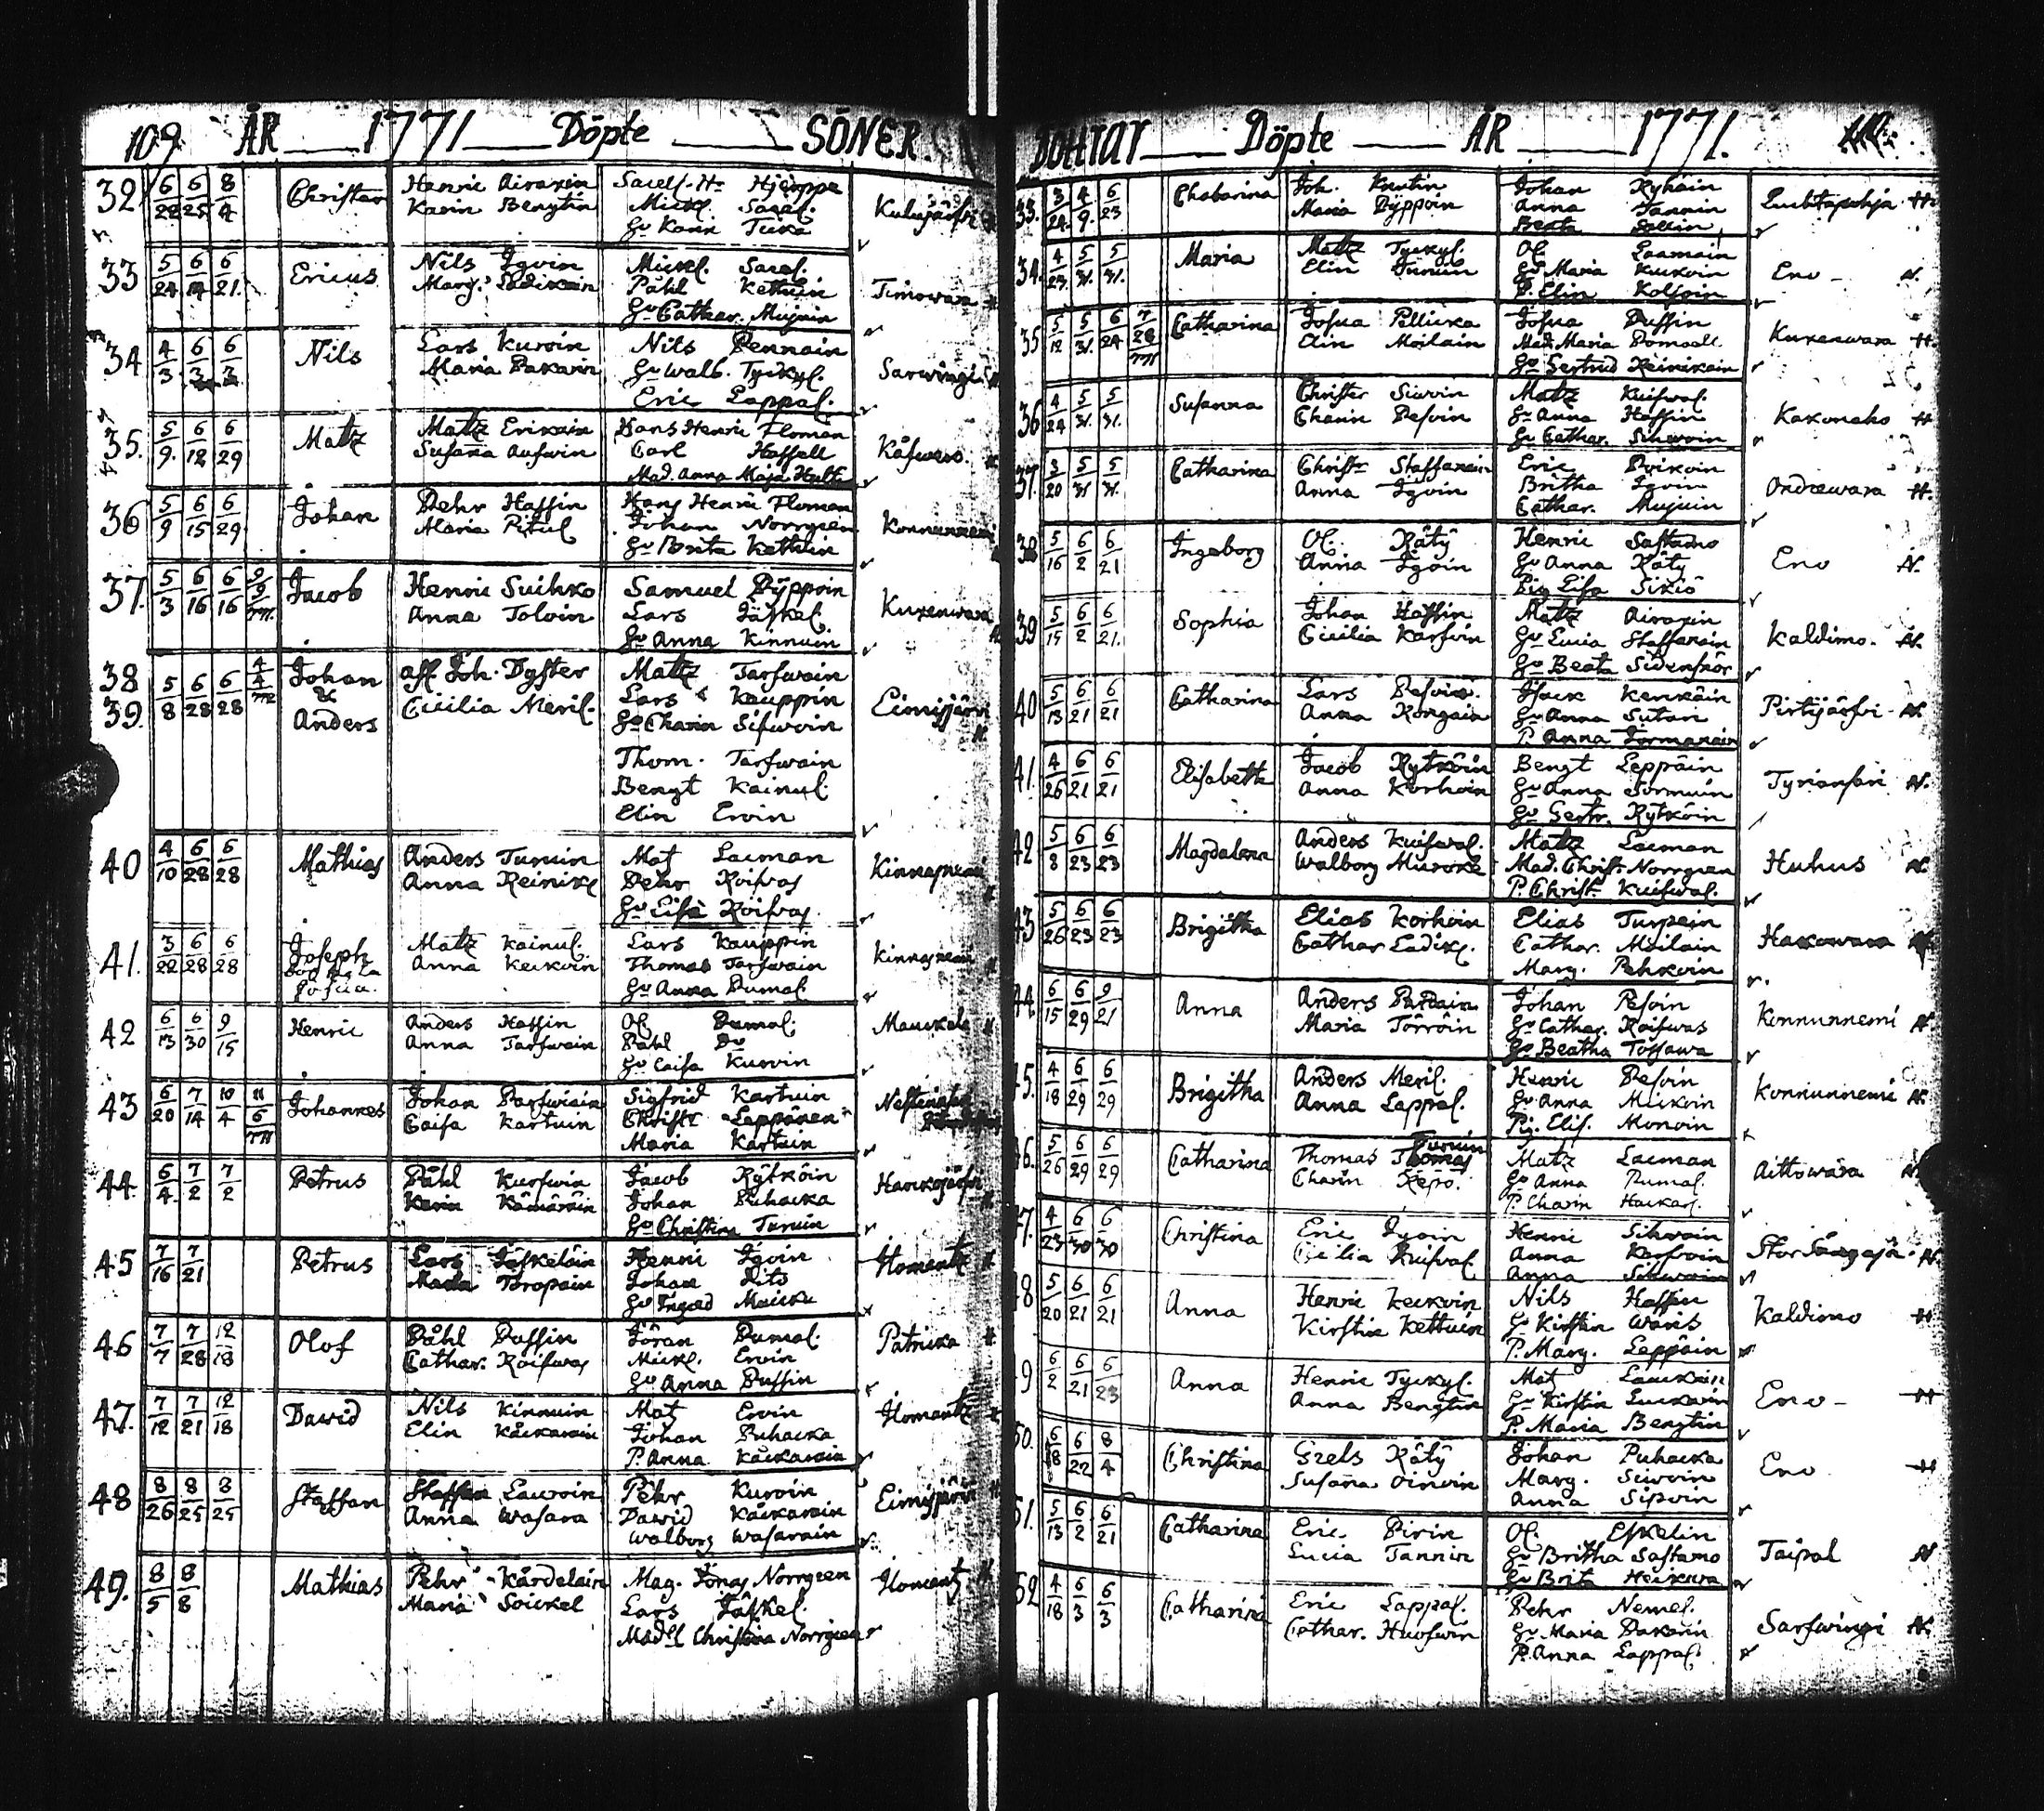 109. ÅR 1771 Döpte SÖNER.
32 6/22 6/25 8/4 Christer Henric Airaxin Karin Bengtin
Mickl. Sacal.
Gu Karin Kulujärfvi
33 5/24 6/14 6/21. Ericus Nils Igoin Mickl. Sacal.
Påhl Kettuin Timowara
Gu Cathar. Mujuin
34 4/3 6/3 6/3 Nils Lars Kuroin Nils Pennain
Maria Pakarin Gu Walb. Tyckyl. Sarwingi
Eric Lappal.
35. 5/9. 6/12 6/29 Matz Matz Erikain Hans Henric Floman
Susana Carl Hassell
Mad. Anna Maja
36 5/9 6/15 6/29 Johan Pehr Hassin Hans Henric Floman
Maria Pitul Johan Norrgren Konnunnemi
Gu Brita Kettuin
37. 5/3 6/16 6/16 9/9 m. Jacob Henric Suihko Samuel Pyppoin
Anna Toloin Lars Jäskel. Kuxenwara
Gu Anna Kinnuin
38 39. 5/8 6/28 6/28 4/4 m Johan & Anders aff. Joh. Dyster Matz Tarfwain
Cicilia Meril. Lars Kauppin Eimisjärvi
Gu Charin Sifwoin
Thom. Tarfwain
Bengt Kainul.
Elin Eroin
40 4/10 6/28 6/28 Mathias Anders Turuin Mat Laiman
Anna Reinik Pehr Roifvas Kinnasnemi
Gu Lisa Roifvas
41. 3/22 6/28 6/28 Joseph Matz Kainul. Lars Kauppin
Anna Keckoin Thomas Tarfwain Kinnasnemi
Gu Anna Pumal.
42 6/13 6/30 9/15 Henric Anders Hassin Ol. Pumal.
Anna Tarfwain Påhl Do
Gu Caisa Kuroin
43 6/20 7/14 10/4 11/6 m Johannes Johan Parfwiain Sigfrid Kartuin
Caisa Kartuin Christr Leppänen
Maria Kartuin
44. 6/4. 7/2 7/2 Petrus Påhl Kurfwin Jacob Rytköin
Karin Kämäräin Johan Puhacka Hauckajärfvi
Gu Christina Turuin
45 7/16 7/21 Petrus Lars Jäskeläin Henric Igoin
Maria Toropain Johan Ilomantz
46 7/7 7/28 12/18 Olof Påhl Pussin Göran Pumal.
Cathar. Roifwas Mickl. Eroin
Gu Anna Pussin
47. 7/12 7/21 12/18 David Nils Kinnuin Mat Eroin
Elin Käckäräin Johan Puhacka Ilomantz
P. Anna
48 8/26 8/25 8/25 Staffan Staffan Lawoin Pehr Kuroin
Anna Wasara David Käckäräin
Walborg Wasarain
49. 8/5 8/8 Mathias Pehr Kärdeläin Mag. Jonas Norrgren Ilomantz
Maria Soickel Lars Jäskel.
Madll Christina Norrgren
DÖHTAR Döpte ÅR 1771.
33. 3/24. 4/9. 6/23 Chatarina Joh. Knutin Johan Ryhäin
Maria Pyppoin Anna Tannin
Beata
34. 4/23. 5/31. 5/31. Maria Matz Tyckyl. Ol. Laamain
Elin Gu Maria Kuckoin Eno
P. Elin Kolsoin
35 5/12 5/31. 6/24 7/28 m Catharina Josua Pellicka Josua Pussin
Elin Moilain Mad. Maria Kuxenwara
Gu Gertrud Reinikain
36 4/24 5/31. 5/31. Susanna Christer Siwoin Matz Kuifwal.
Charin Pesoin Gu Anna Hassin Kakonaho
Gu Cathar. Sihwoin
37. 3/20 5/31 5/31. Catharina Christr Staffanain Eric
Anna Igoin Britha Igoin
Cathar. Mujuin
38 5/16 6/2 6/21 Ingeborg Ol. Räty Henric Sastamo
Anna Igoin Gu Anna Räty Eno
Pig Lisa Sikiö
39 5/15 6/2 6/21. Sophia Johan Hassin Matz Airaxin
Cicilia Karfvin Gu Lucia Staffanain Kaldimo.
Gu Beata
40 5/13 6/21 6/21 Catharina Lars Pesoin Isack Kenkäin
Anna Kongain Gu Anna Sutan
P. Anna Jormanain
41. 4/26 6/21 6/21 Elisabeth Jacob Rytköin Bengt Leppäin
Anna Korhoin Gu Anna
Gu Gertr. Rytköin
42 5/8 6/23 6/23 Magdalena Anders Kuifwal. Matz Laiman
Walborg Mad. Christ. Norrgren Huhus
P. Christ. Kuifwal.
43 5/26 6/23 6/23 Brigitha Elias Korhoin Elias Turpein
Cathar Ladik. Cathar. Moilain Hakowara
Marg. Pehkoin
44. 6/15 6/29 9/21 Anna Anders Pardain Johan Pesoin
Maria Törröin Gu Cathar. Roifwas Konnunnemi
Gu Beatha Tossawa
45. 4/18 6/29 6/29 Brigitha Anders Meril. Henric Pesoin
Anna Lappal. Gu Anna Mickoin Konnunnemi
Pig. Elis. Monoin
46. 5/26 6/29 6/29 Catharina Thomas Turuin Matz Laiman
Charin Repo. Gu Anna Pumal. Aittowara
P. Charin
47. 4/23 6/30 6/30 Christina Eric Igoin Henric Sihwoin
Cicilia Kuifwal. Anna
Anna Sihwoin
48 5/20 6/21 6/21 Anna Henric Keckoin Nils Hassin
Kirstin Kettuin Gu Kirstin Kaldimo
P. Marg. Leppäin
49 6/2 6/21 6/23 Anna Henric Tyckyl. Mat
Anna Bengtin Gu Kirstin Eno
P. Maria Bengtin
50. 6/18 6/22 8/4 Christina Grels Räty Johan Puhacka
Susana Oinoin Marg. Siwoin Eno
Anna Sipoin
51. 5/13 6/2 6/21 Catharina Eric Pirin Ol. Eskelin
Lucia Tannin Gu Britha Sastamo Taipal
Gu Brita
52 4/18 6/3 6/3 Catharina Eric Lappal. Pehr Nemel.
Cathar. Gu Maria Pakarin Sarfwingi
P. Anna Lappal.